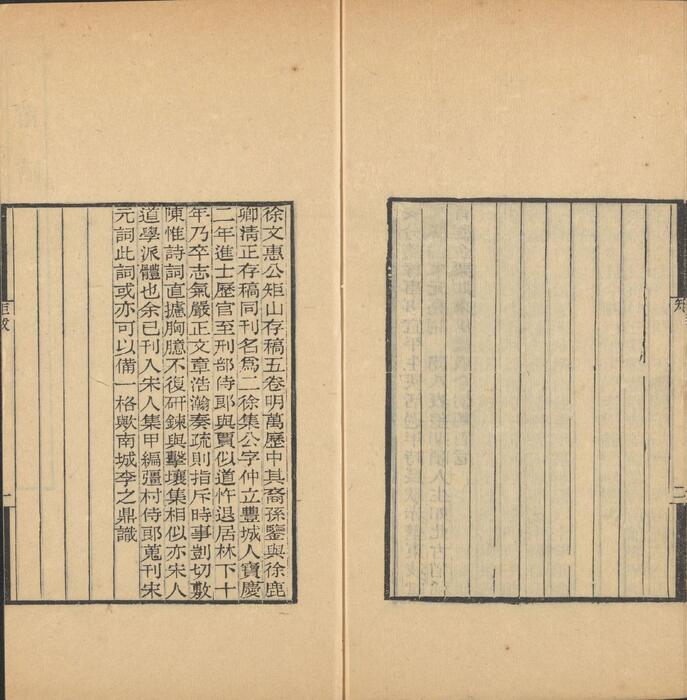 徐文惠公矩山存稿五卷明萬歷中其裔孫鑒與徐鹿
卿淸正存稿同刊名爲二徐集公字仲立豐城人寶慶
二年進士歷官至刑部侍郎與賈似道忤退居林下十
年乃卒志氣嚴正文章浩瀚奏疏則指斥時事剴切敷
陳惟詩詞直攄胸臆不復硏鍊與擊壤集相似亦宋人
道學派體也余已刊入宋人集甲編彊村侍郎蒐刊宋
元詞此詞或亦可以備一格歟南城李之鼎識
一
二